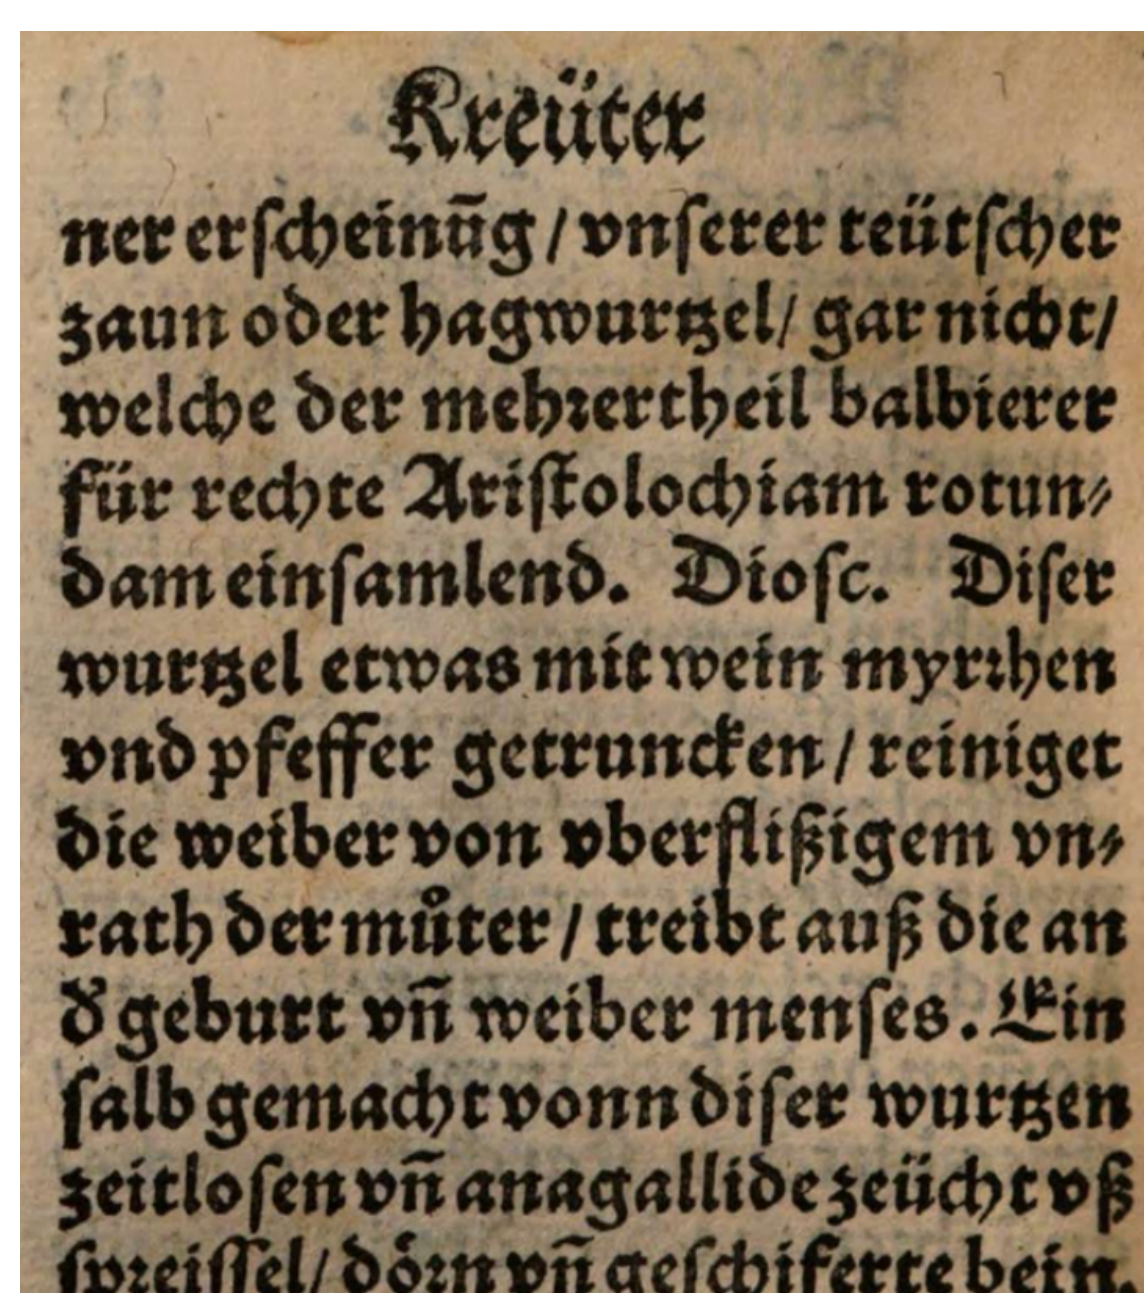 Kreüter
ner erſcheinūg / vnſerer teütſcher
zaun oder hagwurtzel / gar nicht /
welche der mehꝛertheil balbierer
für rechte Ariſtolochiam rotun⸗
dam einſamlend. Dioſc. Diſer
wurtzel etwas mit wein myrꝛhen
vnd pfeffer getruncken / reiniget
die weiber von vberflißigem vn⸗
rath der můter / treibt auß die an
d̕ geburt vn̄ weiber menſes. Ein
ſalb gemacht vonn diſer wurtzen
zeitloſen vn̄ anagallide zeücht vß
ſpꝛeiſſel / doͤꝛn vn̄ geſchiferte bein.